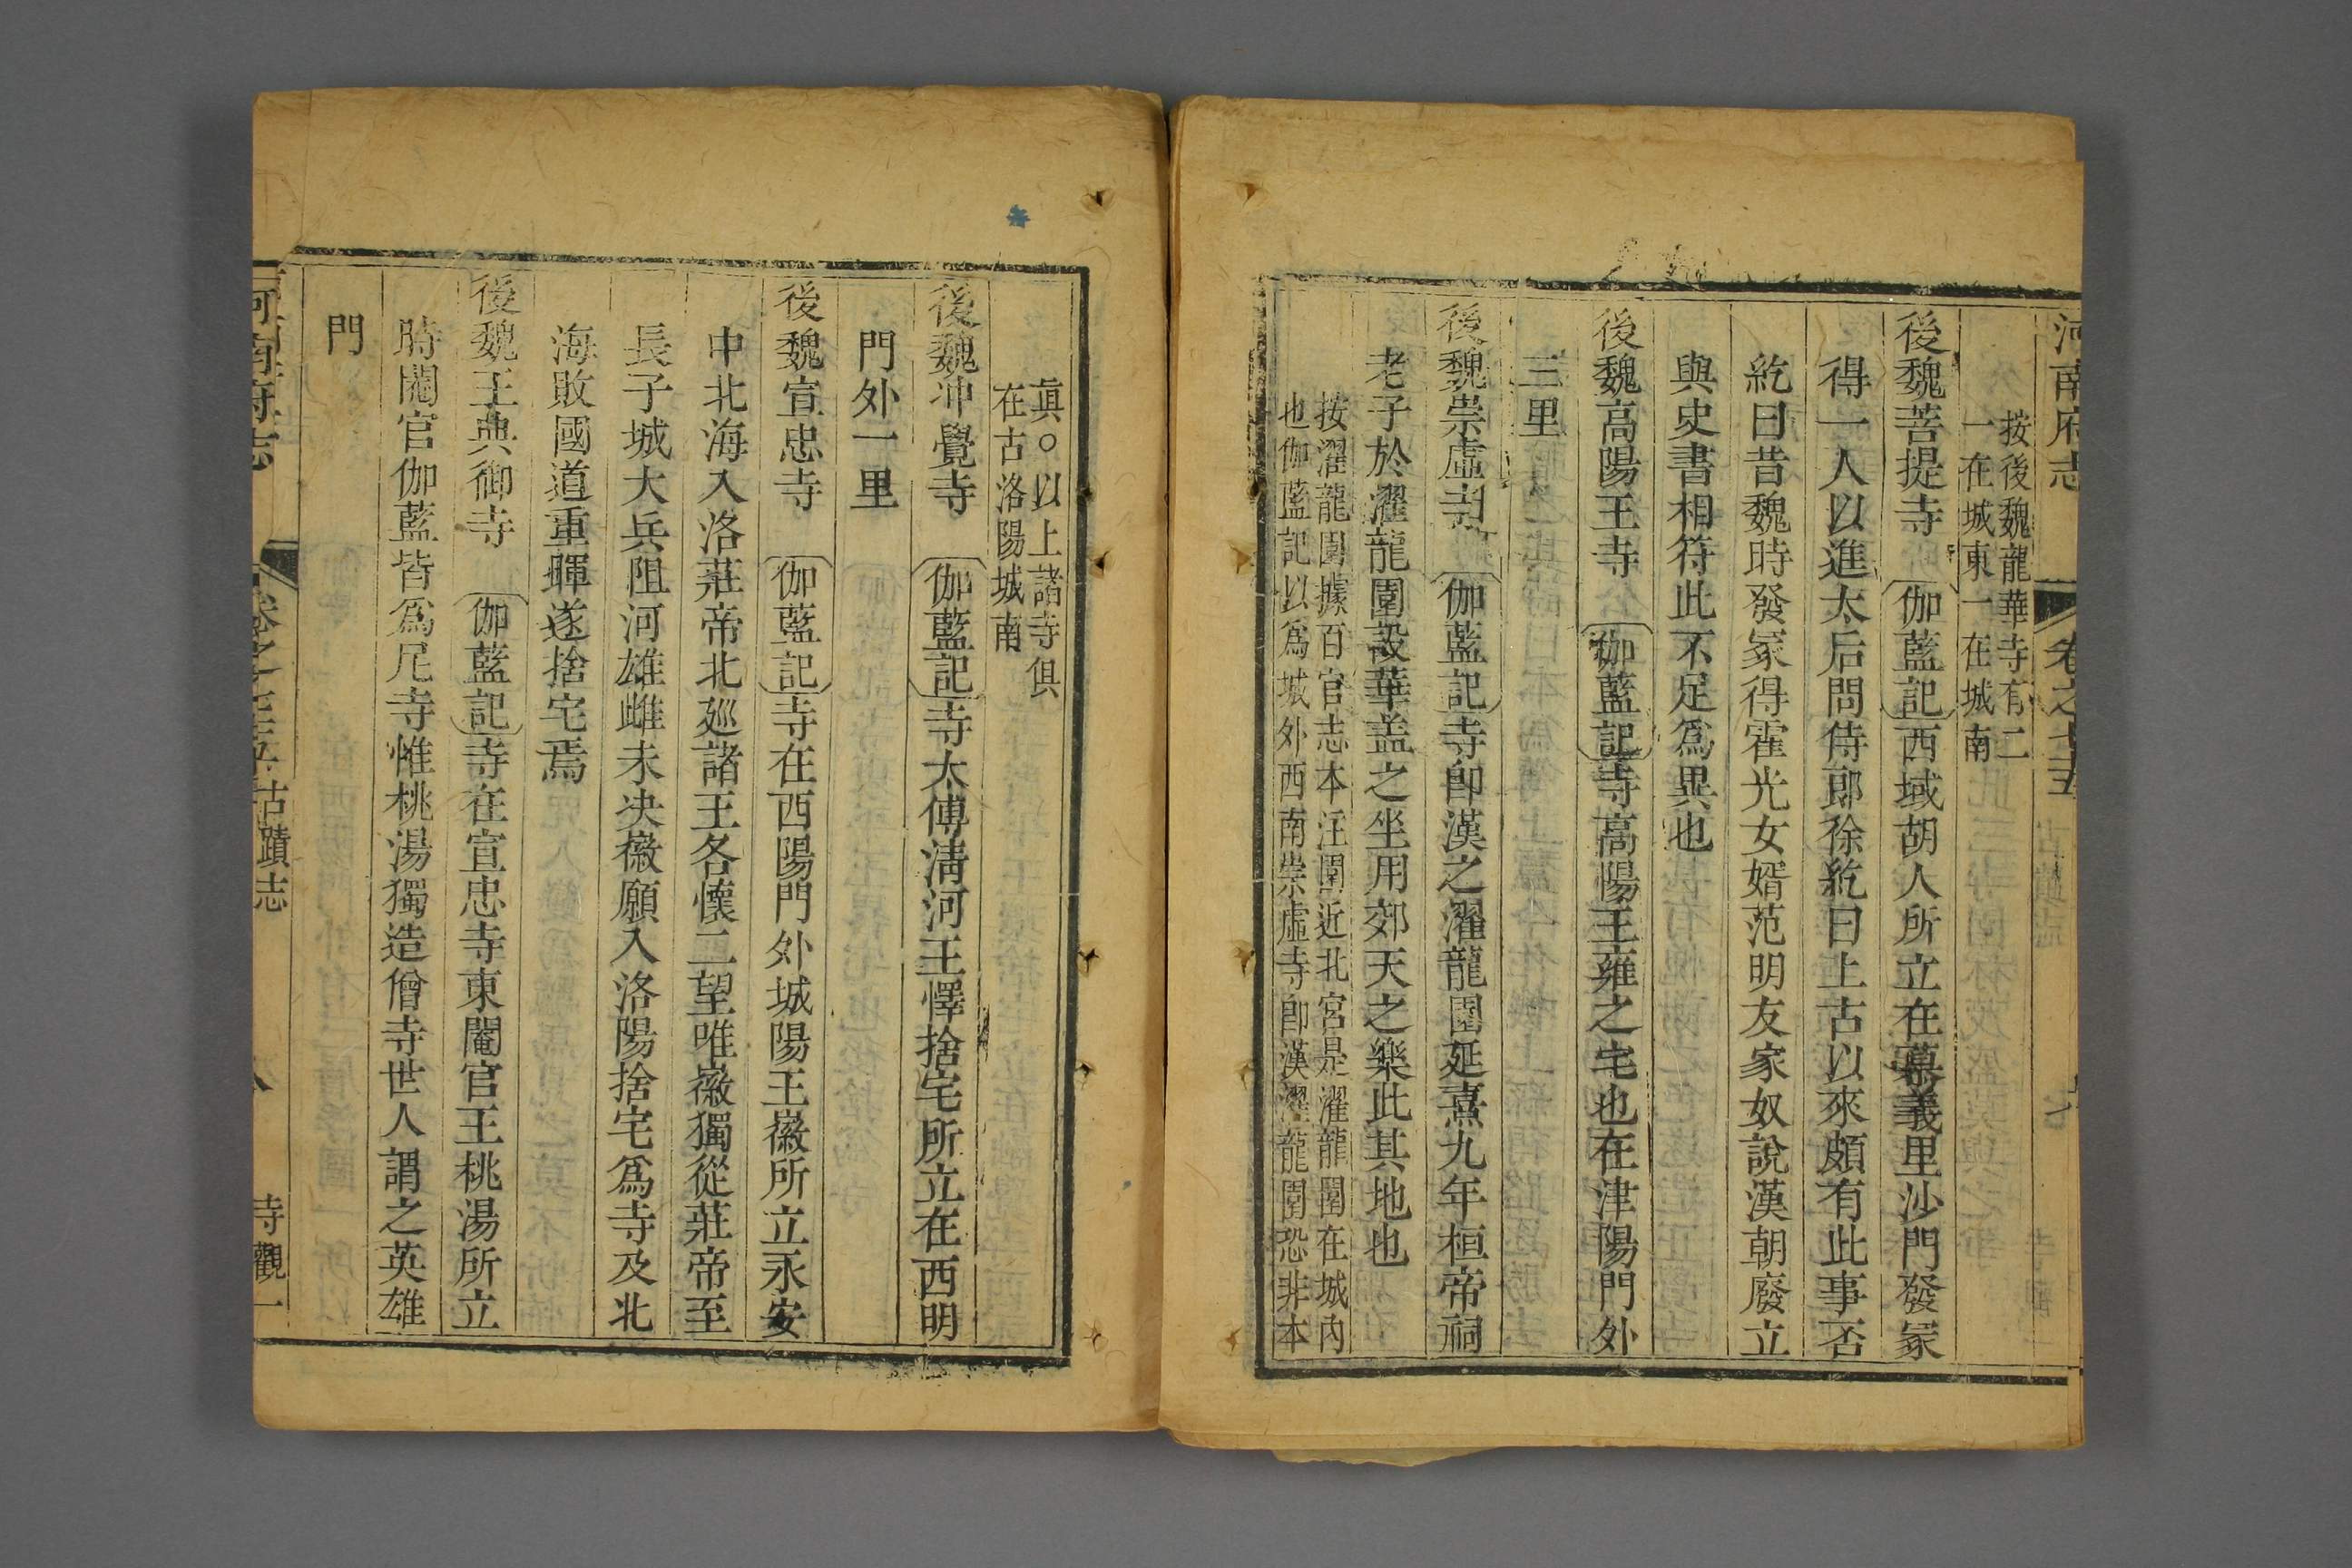 河南府志 卷之七十五
按後魏龍華寺有二
一在城東一在城南
後魏菩提寺 伽藍記西域胡人所立在慕義里沙門發冢
得一人以進太后問侍郎徐紇曰上古以來頗有此事否
紇曰昔魏時發冢得霍光女婿范明友家奴說漢朝廢立
與史書相符此不足爲異也
後魏高陽王寺 伽藍記寺高陽王雍之宅也在津陽門外
三里
後魏崇虛寺 伽藍記寺卽漢之濯龍園延熹九年桓帝祠
老子於濯龍園設華盖之坐用郊天之樂此其地也
按濯龍園據百官志本汪園近北宮是濯龍園在城內
也伽藍記以爲城外西南崇虛寺卽漢濯龍園恐非本
眞○以上諸寺俱
在古洛陽城南
後魏冲覺寺 伽藍記寺太傅淸河王懌捨宅所立在西明
門外一里
後魏宣忠寺 伽藍記寺在西陽門外城陽王徽所立永安
中北海入洛莊帝北廵諸王各懷二望唯徽獨從莊帝至
長子城大兵阻河雄雌未决徽願入洛陽捨宅爲寺及北
海敗國道重暉遂捨宅焉
後魏王典御寺 伽藍記寺在宣忠寺東閹官王桃湯所立
時閹官伽藍皆爲尼寺惟桃湯獨造僧寺世人謂之英雄
門
河南府志 卷之七十五 古蹟志 八 寺觀一